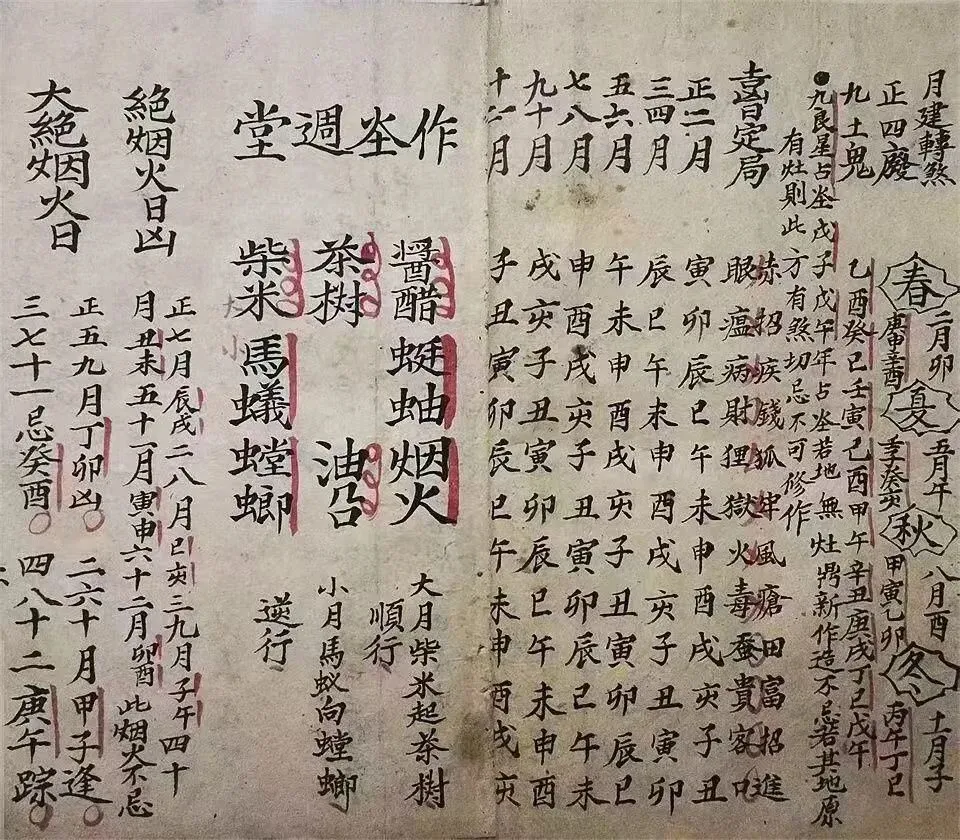 月建轉煞 春 二月卯 夏 五月午 秋 八月酉 冬 十一月子
正四廢 庚申辛酉 壬子癸亥 甲寅乙卯 丙午丁巳
九土鬼 乙酉癸巳壬寅己酉甲午辛丑庚戌丁巳戊午
九良星占灶戊子戊午年占灶若地無灶鼎新作造不忌若其地原
有灶則此方有煞切忌不可修作
定局 赤招疾錢狐牢風瘡田富招進
眼瘟病財狸獄火毒蚕貴客口
正二月 寅卯辰巳午未申酉戌亥子丑
三四月 辰巳午未申酉戌亥子丑寅卯
五六月 午未申酉戌亥子丑寅卯辰巳
七八月 申酉戌亥子丑寅卯辰巳午未
九十月 戌亥子丑寅卯辰巳午未申酉
月 子丑寅卯辰巳午未申酉戌亥
作灶週堂
醬醋 蜓蚰 烟火 大月柴米起茶樹
順行
茶樹 油 小月馬蚁向螳螂
逆行
柴米 馬蟻 螳螂
絕烟火日凶 正七月辰戌二八月巳亥三九月子午四十
月丑未五十一月寅申六十二月卯酉此烟火不忌
大絕烟火日 正五九月丁卯凶 二六十月甲子逢
三七十一忌癸酉 四八十二庚午踪